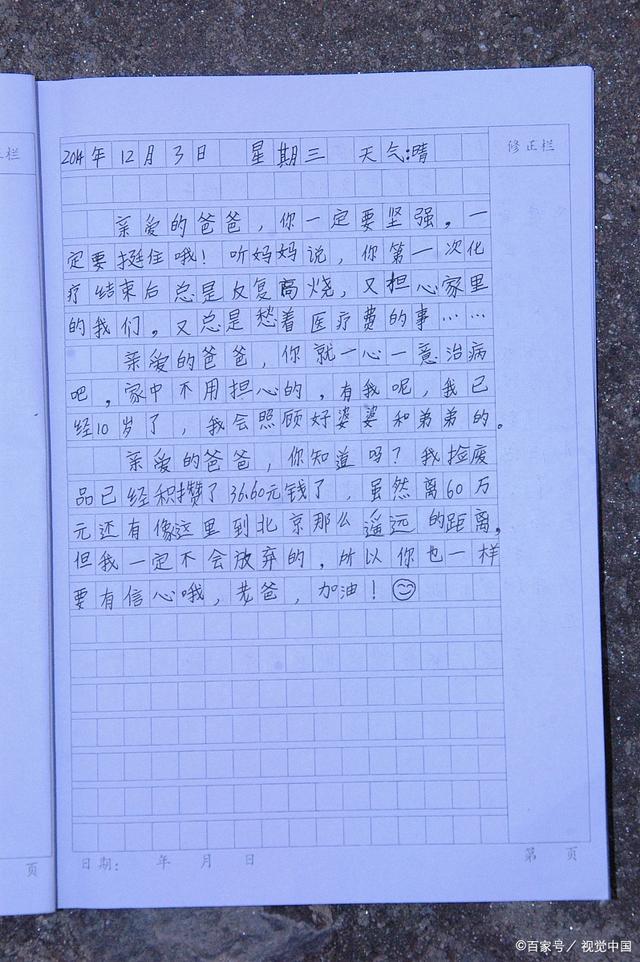 2014年12月3日 星期三 天气:晴
修正栏
正栏
亲爱的爸爸,你一定要坚强。一
定要挺住哦!听妈妈说,你第一次化
疗结束后总是反复高烧,又担心家里
的我们。又总是愁着医疗费的事……
亲爱的爸爸,你就一心一意治病
吧。家中不用担心的,有我呢,我已
经10岁了,我会照顾好婆婆和弟弟的。
亲爱的爸爸,你知道吗?我捡废
品已经积攒了36.60元钱了,虽然离60万
元还有像这里到北京那么遥远的距离。
但我一定不会放弃的,所以你也一样
要有信心哦,老爸,加油!
日期: 年 月 日
第 页
页
©百家号/视觉中国